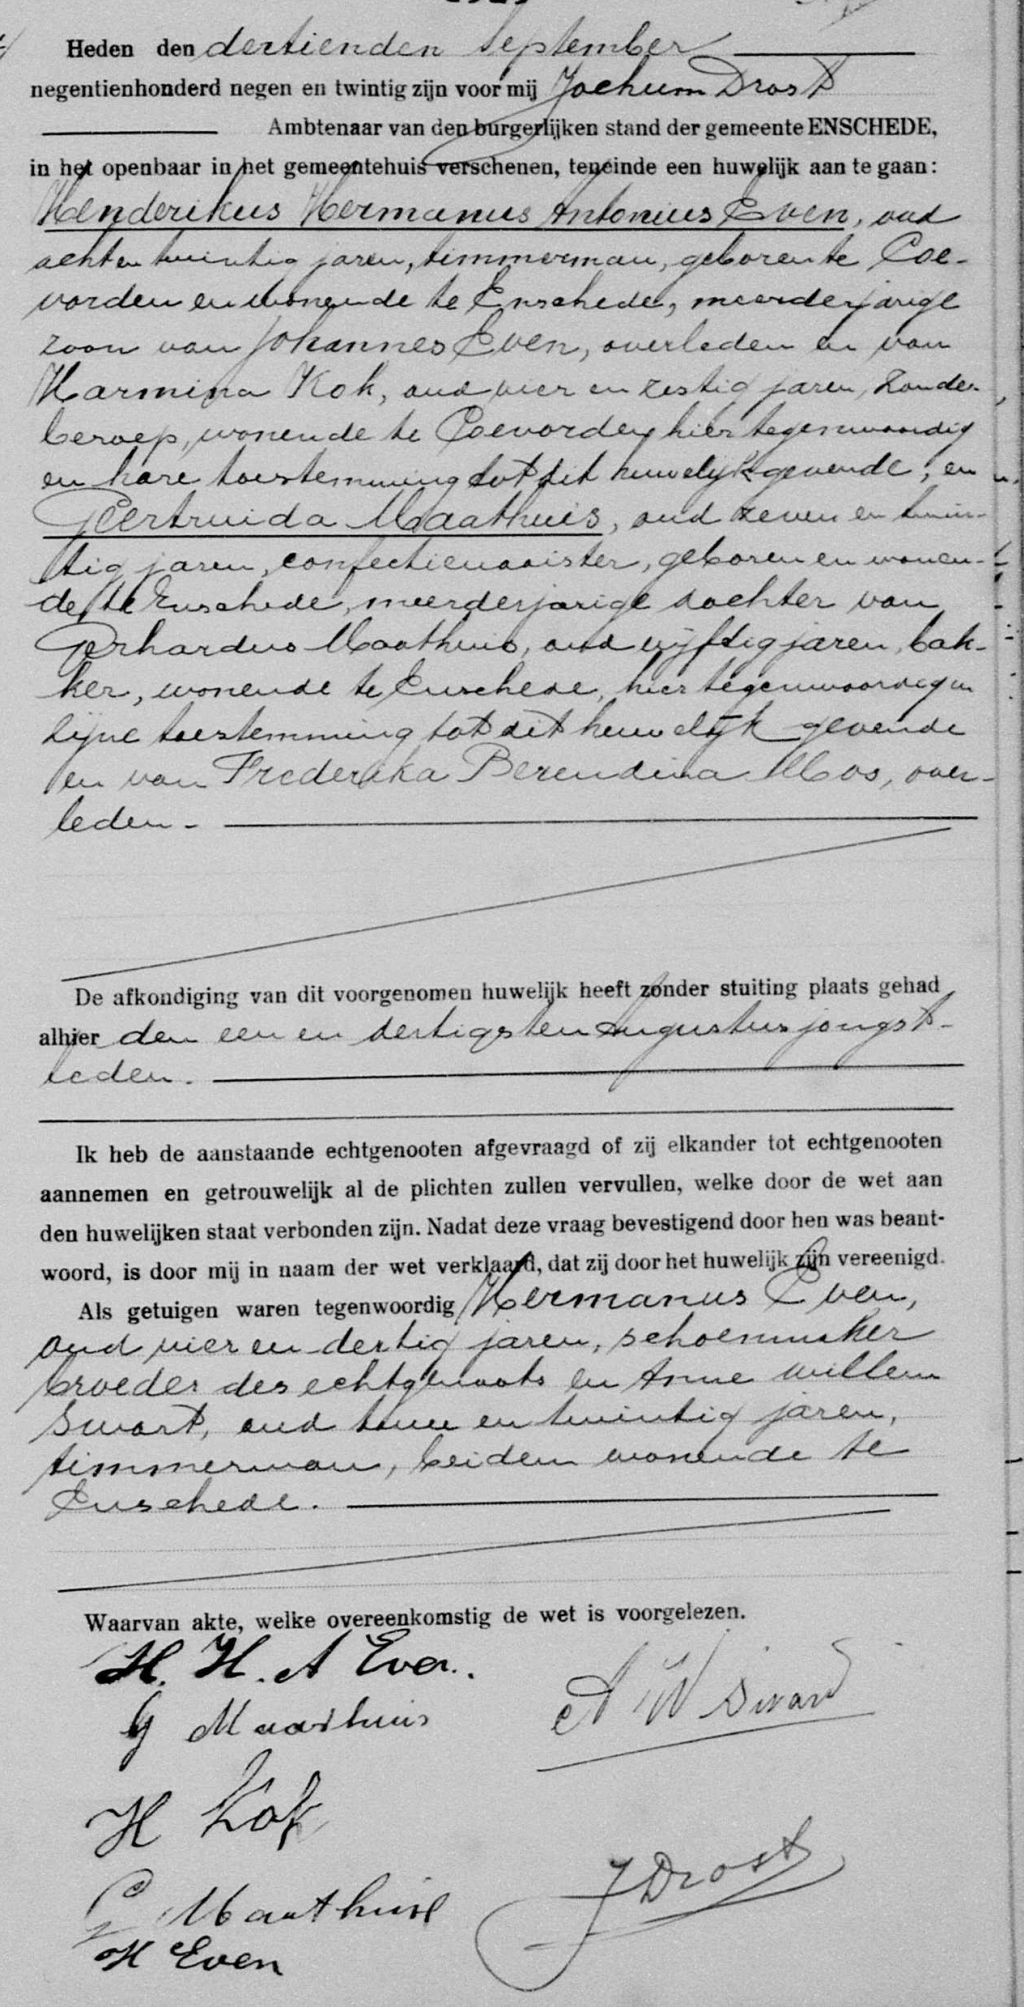 Heden den dertienden September
negentienhonderd negen en twintig zijn voor mij Jochum Drost
Ambtenaar van den burgerlijken stand der gemeente ENSCHEDE,
in het openbaar in het gemeentehuis verschenen, teneinde een huwelijk aan te gaan:
Henderikus Hermanus Antonius Even, oud
acht en twintig jaren, timmerman, geboren te Coe-
vorden en wonende te Enschede, meerderjarige
zoon van Johannes Even, overleden en van
Harmina Kok, oud vier en zestig jaren, zonder
beroep, wonende te Coevorden, hier tegenwoordig
en hare toestemming tot dit huwelijk gevende; en
Geertruida Maathuis, oud zeven en twin-
tig jaren, confectienaaister, geboren en wonen-
de te Enschede, meerderjarige dochter van
Gerhardus Maathuis, oud vijftig jaren, bak-
ker, wonende te Enschede, hier tegenwoordig en
zijne toestemming tot dit huwelijk gevende
en van Frederika Berendina Mos, over-
leden.-
De afkondiging van dit voorgenomen huwelijk heeft zonder stuiting plaats gehad
alhier den een en dertigsten Augustus jongst-
leden.
Ik heb de aanstaande echtgenooten afgevraagd of zij elkander tot echtgenooten
aannemen en getrouwelijk al de plichten zullen vervullen, welke door de wet aan
den huwelijken staat verbonden zijn. Nadat deze vraag bevestigend door hen was beant-
woord, is door mij in naam der wet verklaard, dat zij door het huwelijk zijn vereenigd.
Als getuigen waren tegenwoordig Hermanus Even,
oud vier en dertig jaren, schoenmaker
broeder des echtgenoots en Anne Willem
Swart, oud twee en twintig jaren,
timmerman, beiden wonende te
Enschede.
Waarvan akte, welke overeenkomstig de wet is voorgelezen.
H. H. A Even.
A W Swart
G Maathuis
H Kok
J Drost
G Maathuis
H Even